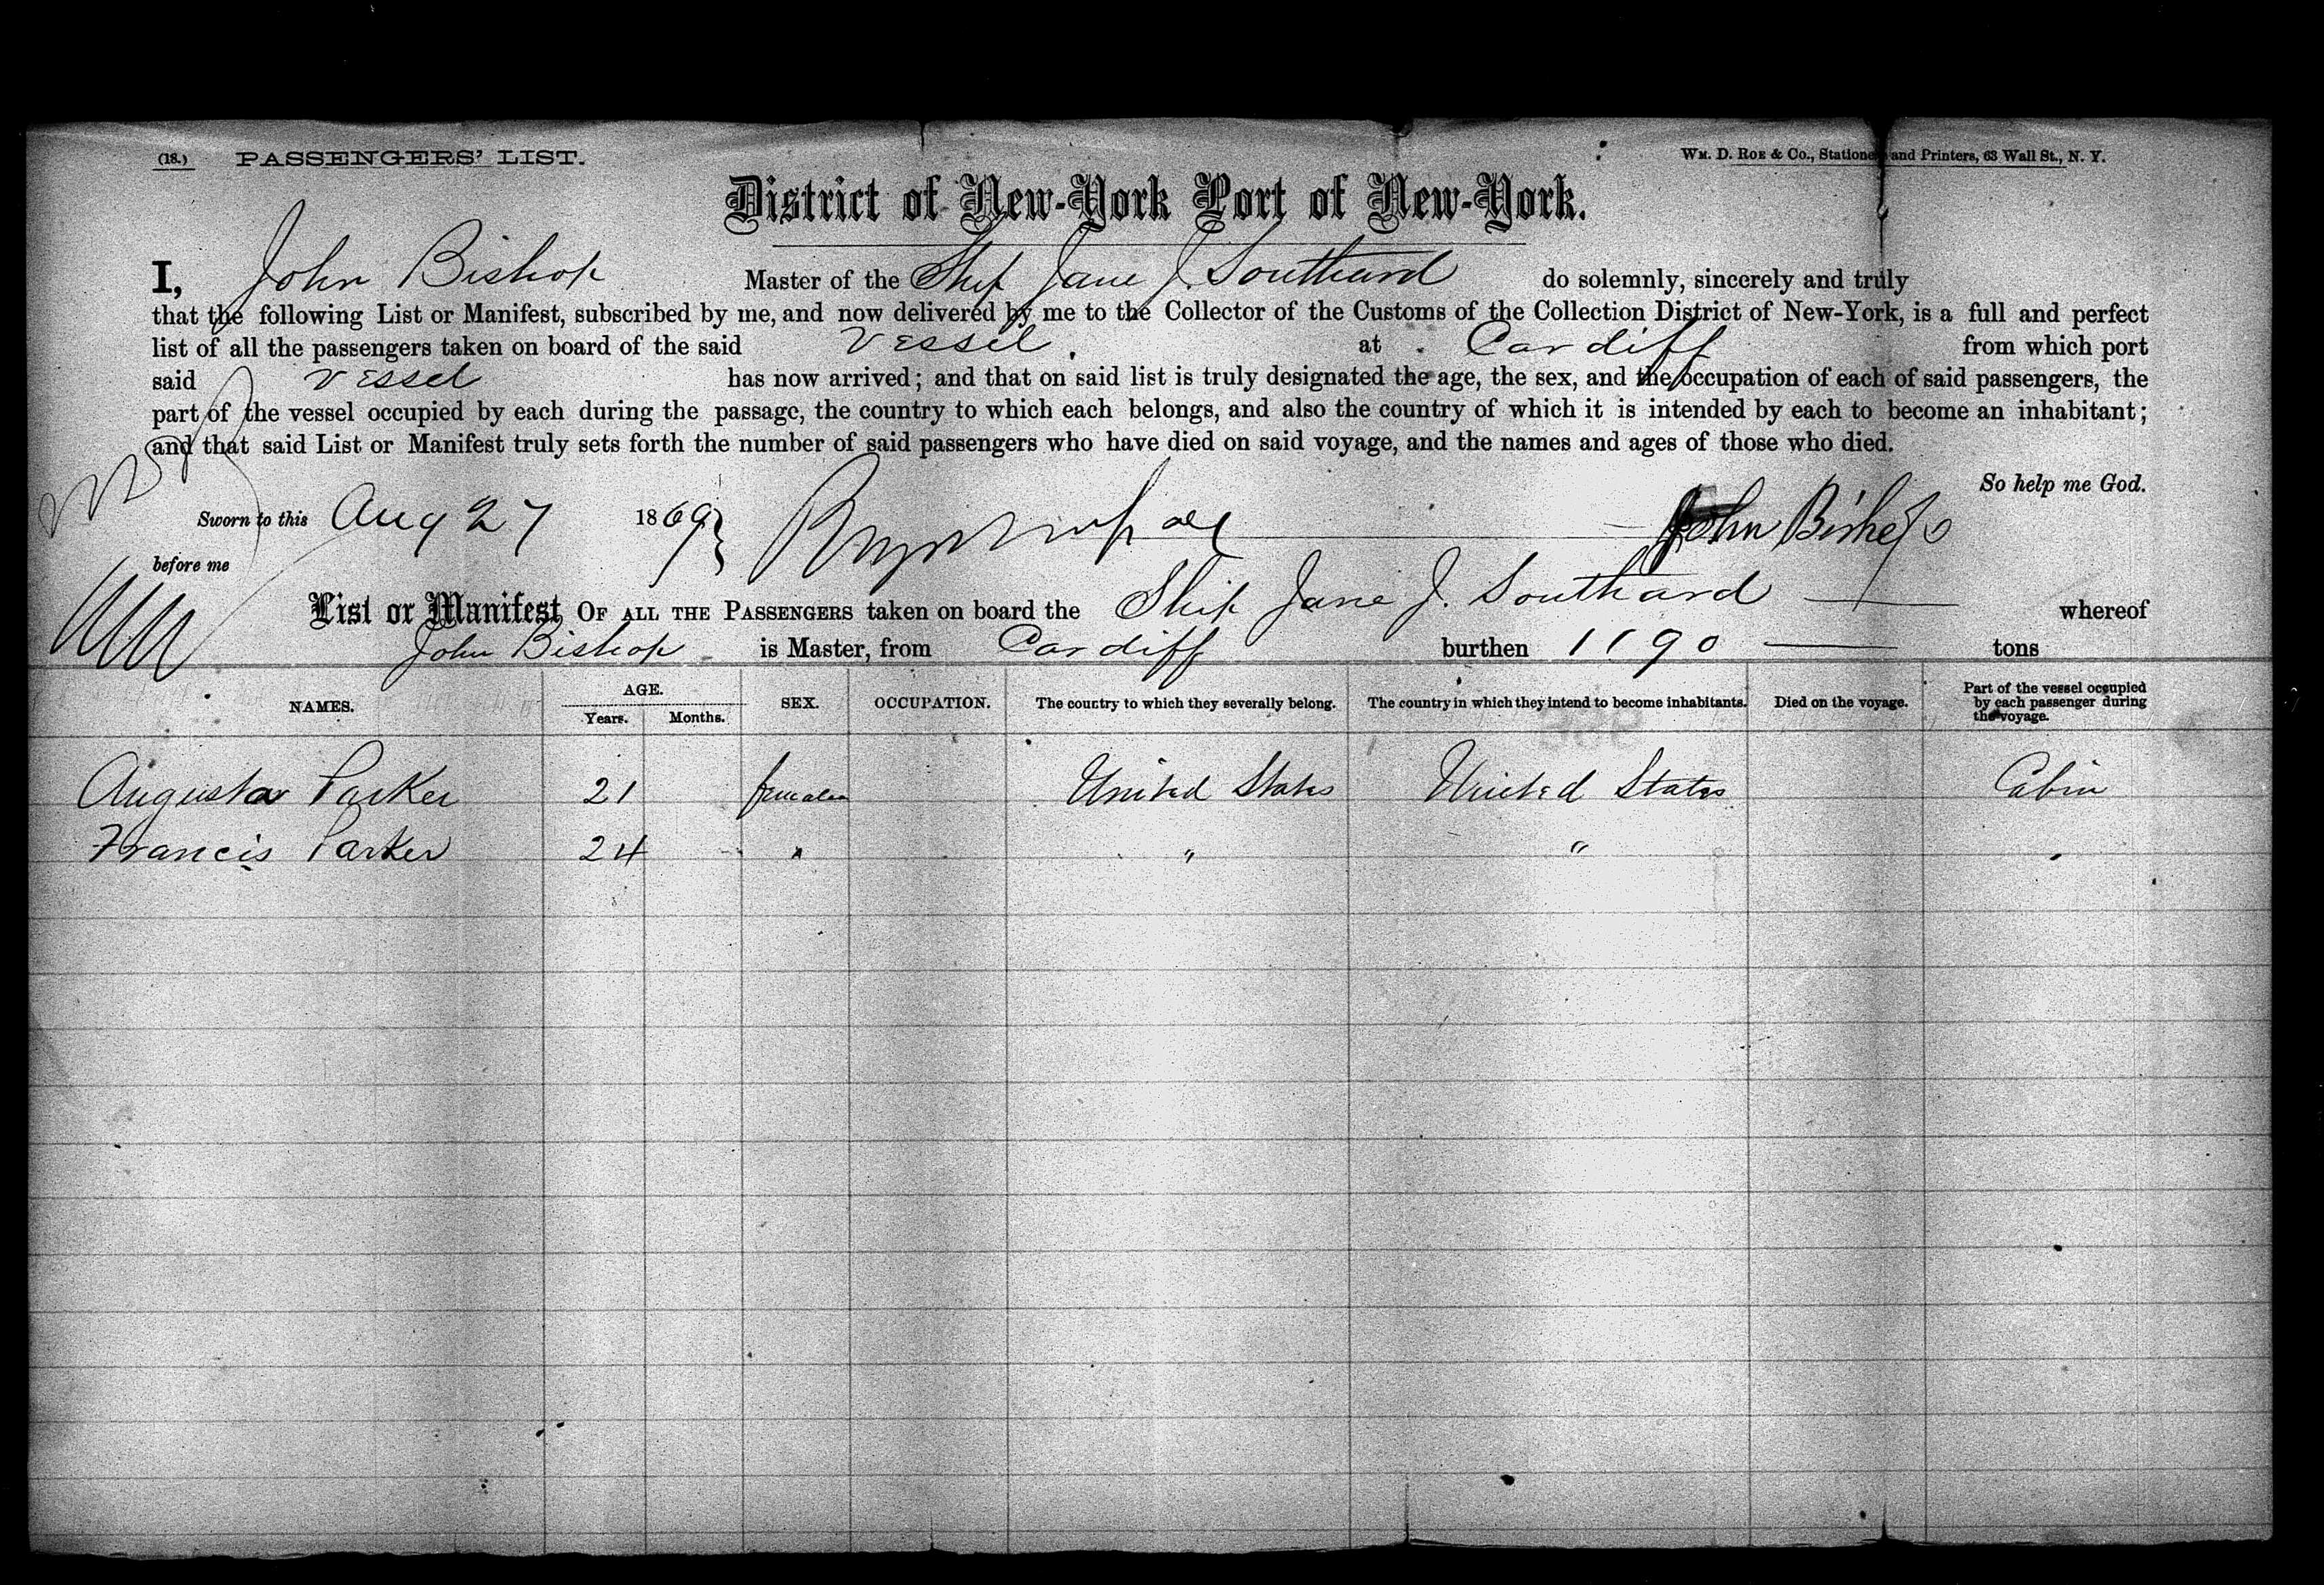 (18.) PASSENGERS' LIST. WM. D. ROE & Co., Stationers and Printers, 63 Wall St., N. Y.
District of New-York Port of New-York.
I, John Bishop Master of the Ship Jane J. Southard do solemnly, sincerely and truly
that the following List or Manifest, subscribed by me, and now delivered by me to the Collector of the Customs of the Collection District of New-York, is a full and perfect
list of all the passengers taken on board of the said Vessel, at Cardiff from which port
said vessel has now arrived; and that on said list is truly designated the age, the sex, and the occupation of each of said passengers, the
part of the vessel occupied by each during the passage, the country to which each belongs, and also the country of which it is intended by each to become an inhabitant;
and that said List or Manifest truly sets forth the number of said passengers who have died on said voyage, and the names and ages of those who died.
So help me God.
Sworn to this Aug 27 1869 John Bishop
before me
List or Manifest OF ALL THE PASSENGERS taken on board the Ship Jane J. Southard whereof
John Bishop is Master, from Cardiff burthen 1190 tons
NAMES. AGE. Years. Months. SEX. OCCUPATION. The country to which they severally belong. The country in which they intend to become inhabitants. Died on the voyage. Part of the vessel occupied by each passenger during the voyage.
Augusta Parker 21 female United States United States Cabin
Francis Parker 24 " " " "